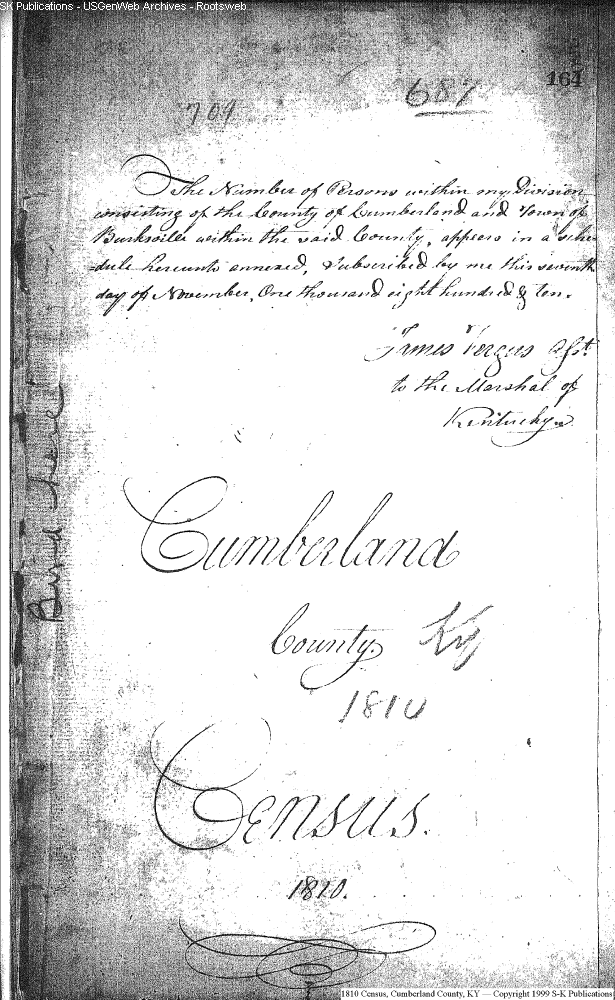 SK Publications - USGenWeb Archives - Rootsweb
164
709
687
The Number of Persons within my Division
consisting of the County of Cumberland and Town of
Burksville within the said County, appears in a sche
-dule hereunto annexed, Subscribed by me this seventh
day of November, One thousand eight hundred & ten.
James Fergus Asst.
to the Marshal of
Kentucky
Bind here
Cumberland
County Ky
1810
Census.
1810.
1810 Census, Cumberland County, KY — Copyright 1999 S-K Publications